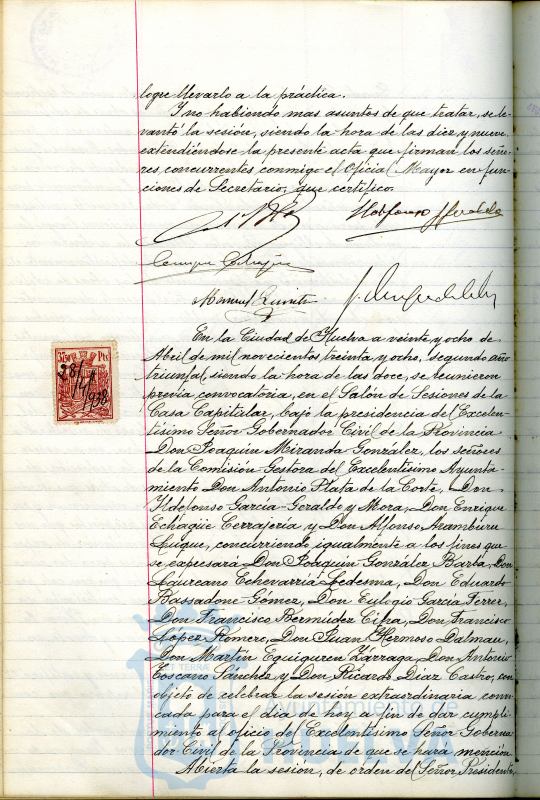 logre llevarlo a la práctica.
Y no habiendo mas asuntos de que tratar, se le-
vantó la sesión, siendo la hora de las diez y nueve
extendiéndose la presente acta que firman los seño-
res concurrentes conmigo el Oficial Mayor en fun-
ciones de Secretario, que certifico.
Ildefonso
Manuel
350 Pts
28/4/938
En la Ciudad de Huelva a veinte y ocho de
Abril de mil novecientos treinta y ocho, segundo año
triunfal, siendo la hora de las doce, se reunieron
previa convocatoria, en el Salón de Sesiones de la
Casa Capitular, bajo la presidencia del Excelen-
tísimo Señor Gobernador Civil de la Provincia
Don Joaquín Miranda González, los señores
de la Comisión Gestora del Excelentísimo Ayunta-
miento Don Antonio Plata de la Corte, Don
Ildefonso García-Geraldo y Mora, Don Enrique
Echagüe Cerrajería y Don Alfonso Aramburu
Luque, concurriendo igualmente a los fines que
se expresará Don Joaquín González Barba, Don
Laureano Echevarría Ledesma, Don Eduardo
Bassadone Gómez, Don Eulogio García Ferrer,
Don Francisco Bermúdez Cifra, Don Francisco
López Romero, Don Juan Hermoso Dalmau,
Don Martín Eguiguren Zárraga, Don Antonio
Toscano Sánchez y Don Ricardo Díaz Castro, con
objeto de celebrar la sesión extraordinaria convo-
cada para el día de hoy a fin de dar cumpli-
miento al oficio del Excelentísimo Señor Goberna-
dor Civil de la Provincia de que se hará mención
Abierta la sesión, de orden del Señor Presidente,
Ayuntamiento de
HUELVA